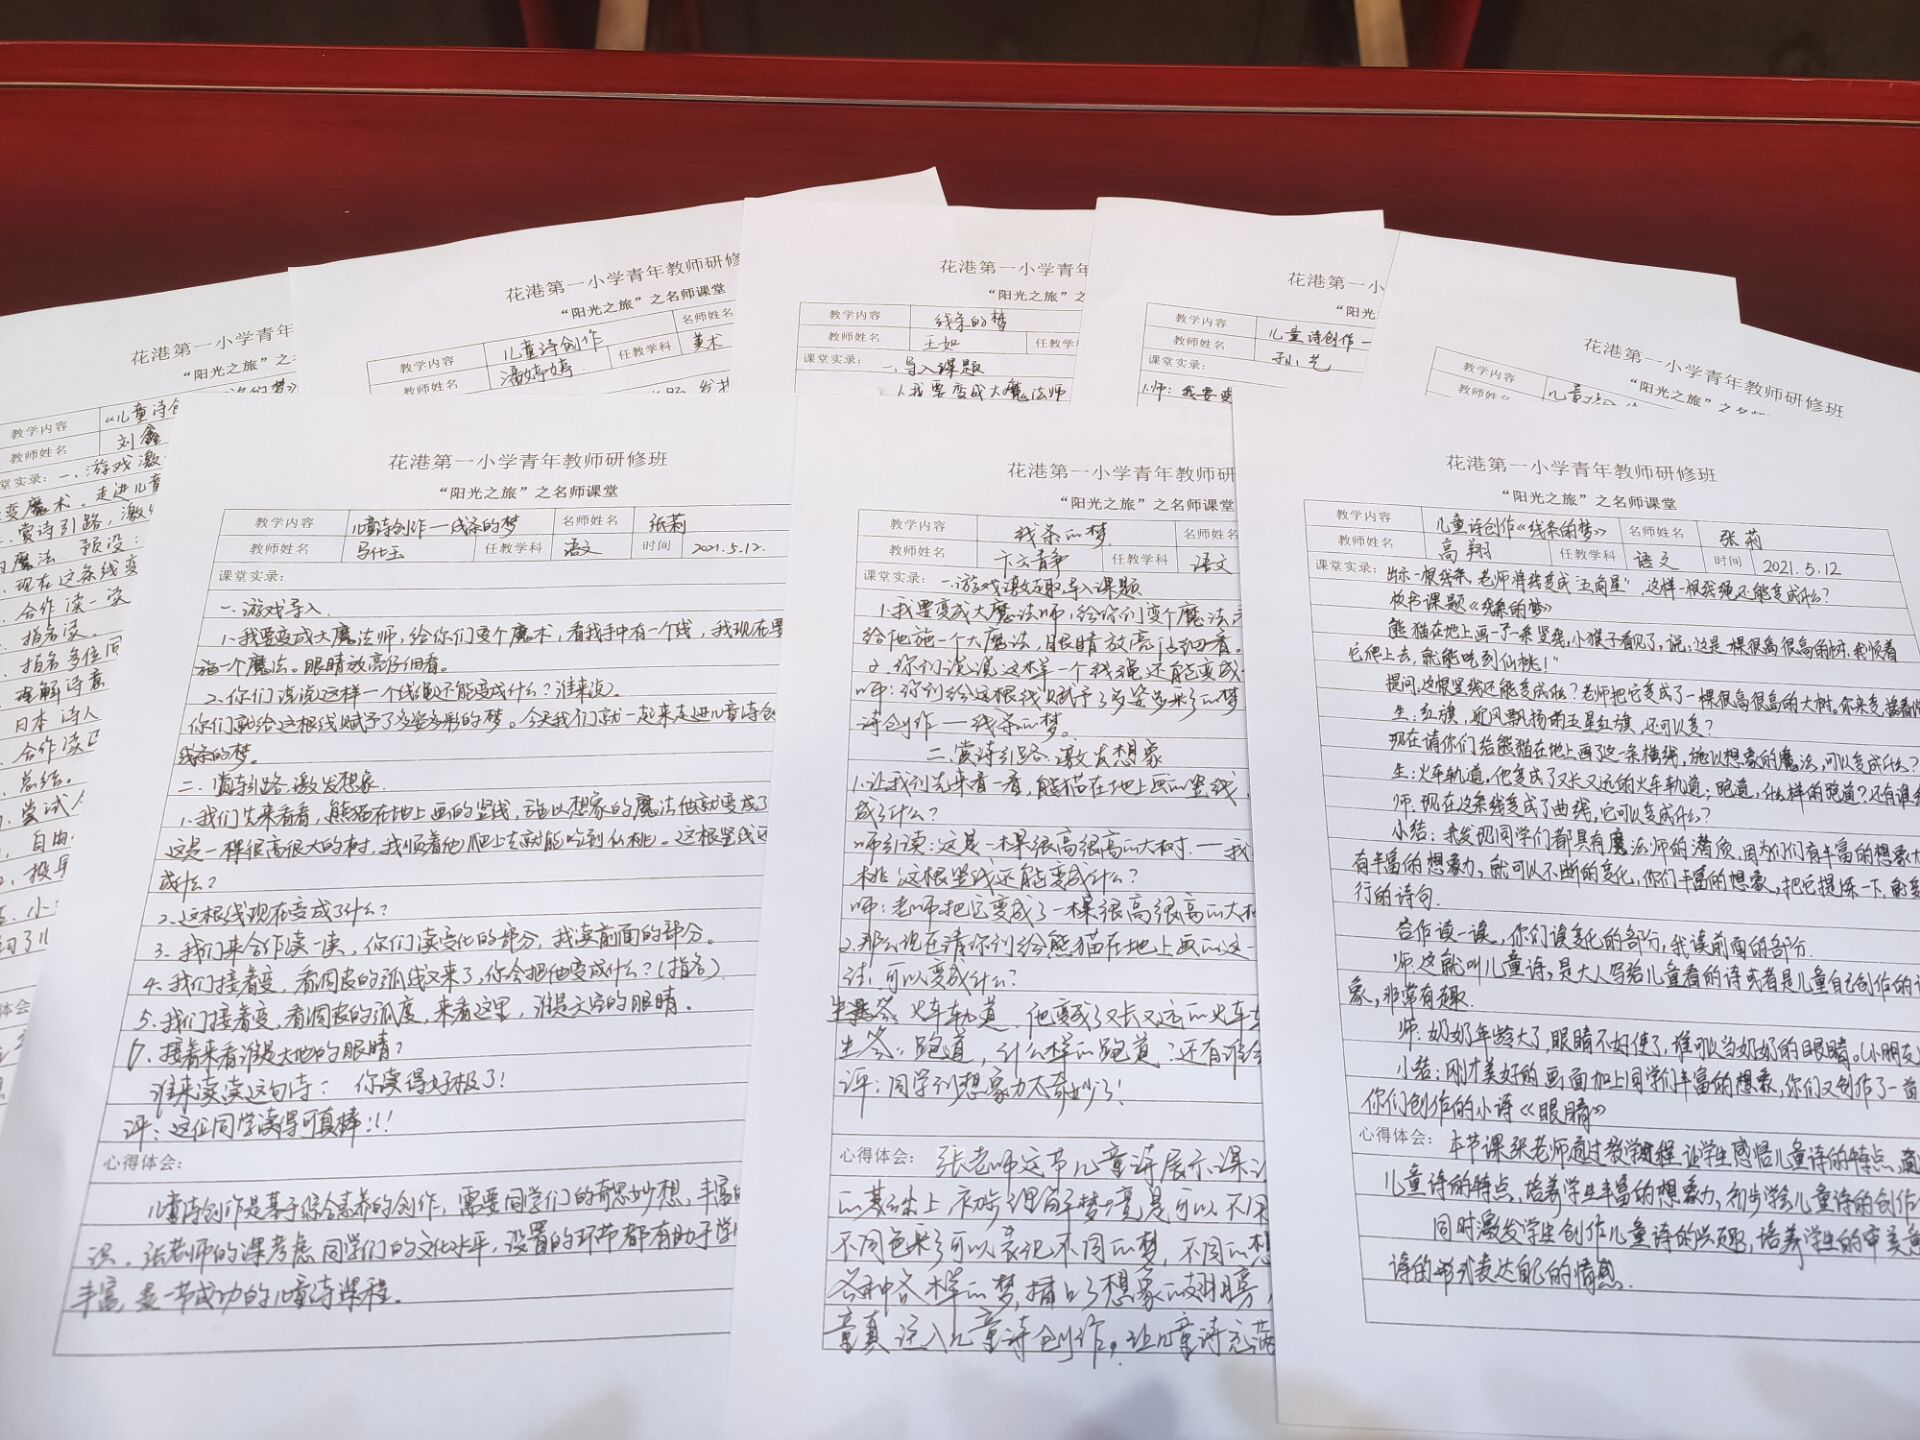 花港第一小学青年
“阳光之旅”之名
教学内容 “儿童诗创
教师姓名 刘鑫
一、游戏激
变魔术。走进儿童
赏诗引路,激
魔法 预设:
现在这条线变
合作读一读
指名读。
指名多位同
理解诗意
日本诗人
合作读
总结。
尝试
自由
花港第一小学青年教师研修
“阳光之旅”之名师课堂
教学内容 儿童诗创作 名师姓名
教师姓名 潘婷婷 任教学科 美术
花港第一小学青年
“阳光之旅”之
教学内容 线条的梦
教师姓名 王如 任教学
课堂实录: 一.导入课题
1.我要变成大魔法师
花港第一小
“阳光之旅
教学内容 儿童诗创作一
教师姓名 孙艺
课堂实录:
1.师:我要变
花港第一小学青年教师研修班
“阳光之旅”之名师课
教学内容
教师姓名
花港第一小学青年教师研修班
“阳光之旅”之名师课堂
教学内容 儿童诗创作—线条的梦 名师姓名 张莉
教师姓名 马仕玉 任教学科 语文 时间 2021.5.12.
课堂实录:
一.游戏导入.
1.我要变成大魔法师,给你们变个魔术,看我手中有一个线,我现在要
施一个魔法。眼睛放亮仔细看。
2.你们说说这样一个线绳还能变成什么?谁来说.
你们就给这根线赋予了多姿多彩的梦。今天我们就一起来走进儿童诗创
线条的梦。
二.赏诗引路.激发想象.
1.我们先来看看,熊猫在地上画的竖线,施以想象的魔法他就变成了
这是一棵很高很大的树,我顺着他爬上去就能吃到仙桃。这根竖线还
成什么?
2.这根线现在变成了什么?
3.我们来合作读一读,你们读变化的部分,我读前面的部分。
4.我们接着变,看调皮的弧线又来了,你会把他变成什么?(指名)
5.我们接着变,看调皮的弧度,来看这里,谁是天空的眼睛。
6.接着来看谁是大地的眼睛?
谁来读读这句诗: 你读得好极了!
评:这位同学读得可真棒!!!
心得体会:
儿童诗创作是基于综合素养的创作,需要同学们的奇思妙想,丰富的
识,张老师的课考虑同学们的文化水平,设置的环节都有助于学
丰富,是一节成功的儿童诗课程。
花港第一小学青年教师研
“阳光之旅”之名师课堂
教学内容 线条的梦. 名师姓名
教师姓名 卞云静 任教学科 语文
课堂实录: 一.游戏激趣导入课题
1.我要变成大魔法师,给你们变个魔法
给他施一个大魔法,眼睛放亮仔细看。
2.你们说说这样一个线绳还能变成
师:你们给这根线赋予了多姿多彩的梦
诗创作 — 线条的梦。
二.赏诗引路.激发想象
1.让我们先来看一看,熊猫在地上画的竖线,
成了什么?
师引读:这是一棵很高很高的大树.—我
桃.这根竖线还能变成什么?
师:老师把它变成了一棵很高很高的大树
2.那么现在请你们给熊猫在地上画的这一
法,可以变成什么?
生答:火车轨道,他变成了又长又远的火车
生答:跑道,什么样的跑道?还有谁
评:同学们想象力太奇妙了!
心得体会: 张老师这节儿童诗展示课
的基础上初步理解梦
不同色彩可以表现不同的梦,不同的想
各种各样的梦,插上了想象的翅膀,
童真 注入儿童诗创作,让儿童诗充满
花港第一小学青年教师研修班
“阳光之旅”之名师课堂
教学内容 儿童诗创作《线条的梦》 名师姓名 张莉
教师姓名 高翔 任教学科 语文 时间 2021.5.12
课堂实录: 出示一根线条,老师将线变成“五角星”,这样一根线绳还能变成什么?
板书课题《线条的梦》
熊猫在地上画了一条竖线,小猴子看见了,说:“这是一棵很高很高的树,我顺着
它爬上去,就能吃到仙桃!”
提问:这根竖线还能变成什么?老师把它变成了一棵很高很高的大树。你来变
生:红旗,迎风飘扬的五星红旗,还可以变?
现在请你们给熊猫在地上画了这一条横线,施以想象的魔法,可以变成什么?
生:火车轨道,他变成了又长又远的火车轨道;跑道,什么样的跑道?还有谁
师:现在这条线变成了曲线,它可以变成什么?
小结:我发现同学们都具有魔法师的潜质,因为你们有丰富的想象力
有丰富的想象力,就可以不断的变化,你们丰富的想象,把它提炼一下,
行的诗句.
合作读一读,你们读变化的部分,我读前面的部分.
师:这就叫儿童诗,是大人写给儿童看的诗或者是儿童自己创作的
象,非常有趣.
师:奶奶年龄大了,眼睛不好使了,谁可以当奶奶的眼睛。(小朋友)
小结:刚才美好的画面加上同学们丰富的想象,你们又创作了一首
你们创作的小诗《眼睛》
心得体会: 本节课张老师通过教学过程 让学生感悟儿童诗的特点,
儿童诗的特点,培养学生丰富的想象力,初步学会儿童诗的创作
同时激发学生创作儿童诗的兴趣,培养学生的审美
诗的形式表达自己的情感.